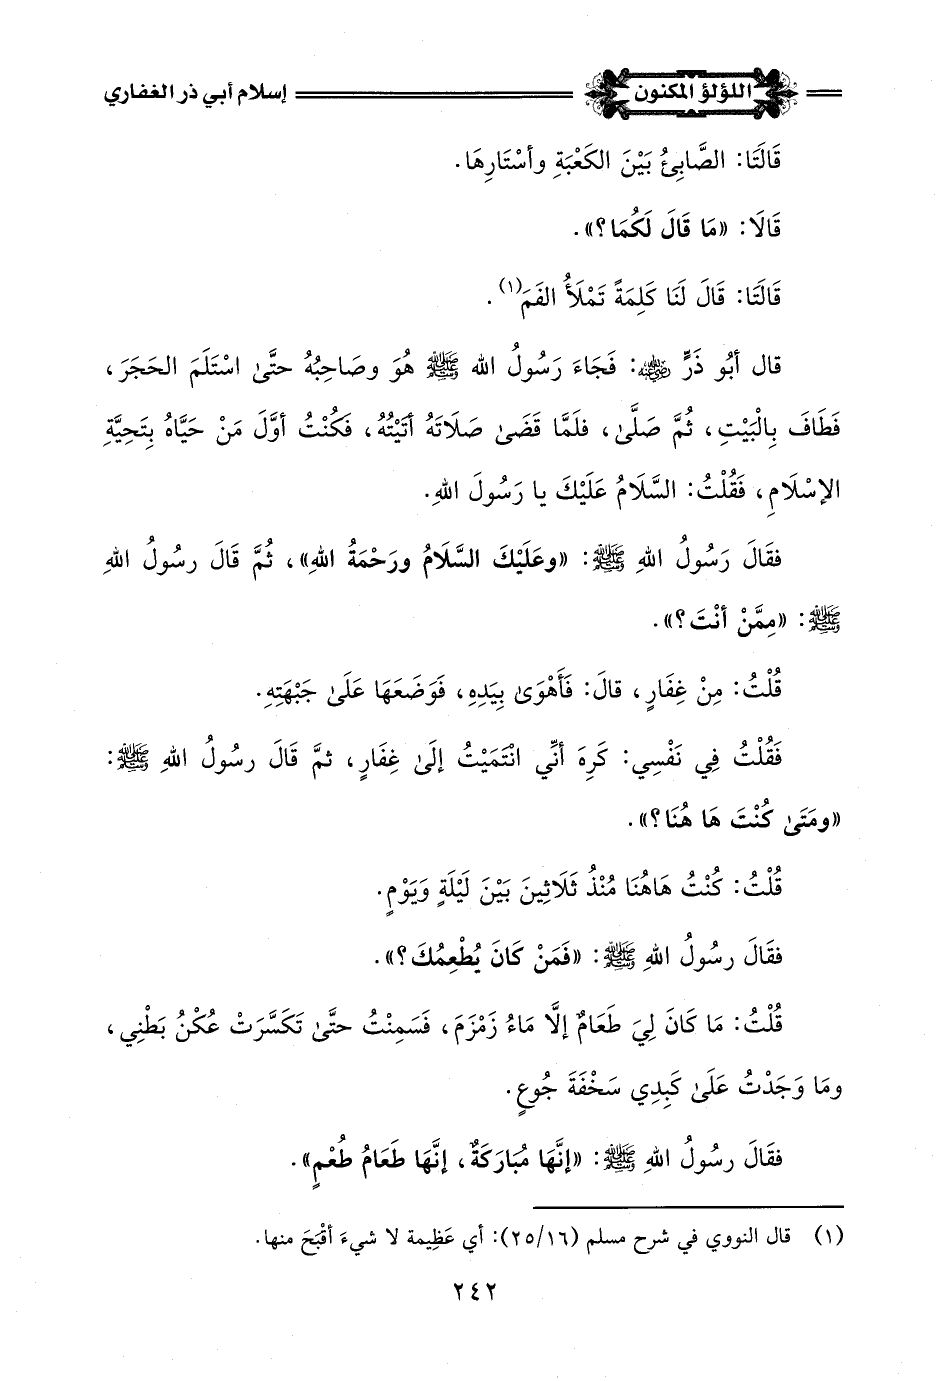 اللؤلؤ المكنون
إسلام أبي ذر الغفاري
قَالَتَا: الصَّابِئُ بَيْنَ الكَعْبَةِ وأسْتَارِهَا.
قَالَا: «مَا قَالَ لَكُمَا؟».
قَالَتَا: قَالَ لَنَا كَلِمَةً تَمْلَأُ الفَمَ(١).
قال أبُو ذَرٍّ رضي الله عنه: فَجَاءَ رَسُولُ الله ﷺ هُوَ وصَاحِبُهُ حتَّىٰ اسْتَلَمَ الحَجَرَ،
فَطَافَ بِالْبَيْتِ، ثُمَّ صَلَّىٰ، فلَمَّا قَضَىٰ صَلَاتَهُ أتَيْتُهُ، فَكُنْتُ أوَّلَ مَنْ حَيَّاهُ بِتَحِيَّةِ
الإسْلَامِ، فَقُلْتُ: السَّلَامُ عَلَيْكَ يا رَسُولَ اللهِ.
فقَالَ رَسُولُ اللهِ ﷺ: «وعَلَيْكَ السَّلَامُ ورَحْمَةُ اللهِ»، ثُمَّ قَالَ رسُولُ اللهِ
ﷺ: «مِمَّنْ أنْتَ؟».
قُلْتُ: مِنْ غِفَارٍ، قالَ: فَأَهْوَىٰ بِيَدِهِ، فَوَضَعَهَا عَلَىٰ جَبْهَتِهِ.
فَقُلْتُ فِي نَفْسِي: كَرِهَ أنِّي انْتَمَيْتُ إلَىٰ غِفَارٍ، ثمَّ قَالَ رسُولُ اللهِ ﷺ:
«ومَتَىٰ كُنْتَ هَا هُنَا؟».
قُلْتُ: كُنْتُ هَاهُنَا مُنْذُ ثَلَاثِينَ بَيْنَ لَيْلَةٍ وَيَوْمٍ.
فقَالَ رسُولُ اللهِ ﷺ: «فَمَنْ كَانَ يُطْعِمُكَ؟».
قُلْتُ: مَا كَانَ لِيَ طَعَامٌ إلَّا مَاءُ زَمْزَمَ، فَسَمِنْتُ حتَّىٰ تَكَسَّرَتْ عُكْنُ بَطْنِي،
ومَا وَجَدْتُ عَلَىٰ كَبِدِي سَخْفَةَ جُوعٍ.
فقَالَ رسُولُ اللهِ ﷺ: «إنَّهَا مُبَارَكَةٌ، إنَّهَا طَعَامُ طُعْمٍ».
(١) قال النووي في شرح مسلم (٢٥/١٦): أي عَظِيمة لا شيءَ أقْبَحَ منها.
٢٤٢